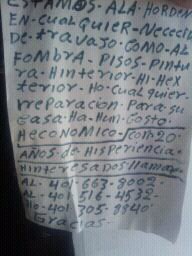 ESTAMOS - ALA - HORDEN
EN - CUALQUIER - Nececid
De - travaso - COMO - AL
FOMBRA - PISOS - Pintu
ra - Hinterior - Hi - Hex
terior - Ho - cualquier -
rreparacion - Para - su
casa - Ha - Hun - Costo -
Heconomico - Con 20 -
AÑOS - de - Hisperiencia -
Hinteresados llamar -
AL - 401 - 663 - 8002 -
AL - 401 - 516 - 4532 -
Ho - 401 - 305 - 8840
Gracias -